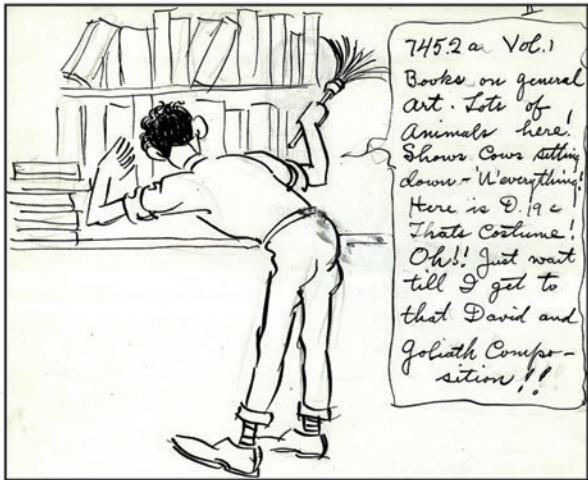 745.2 a Vol.1
Books on general
Art. Lots of
Animals here!
Shows Cows sitting
down - 'N' everything!
Here is D.19 c
Thats Costume!
Oh!! Just wait
till I get to
that David and
Goliath Compo-
sition!!